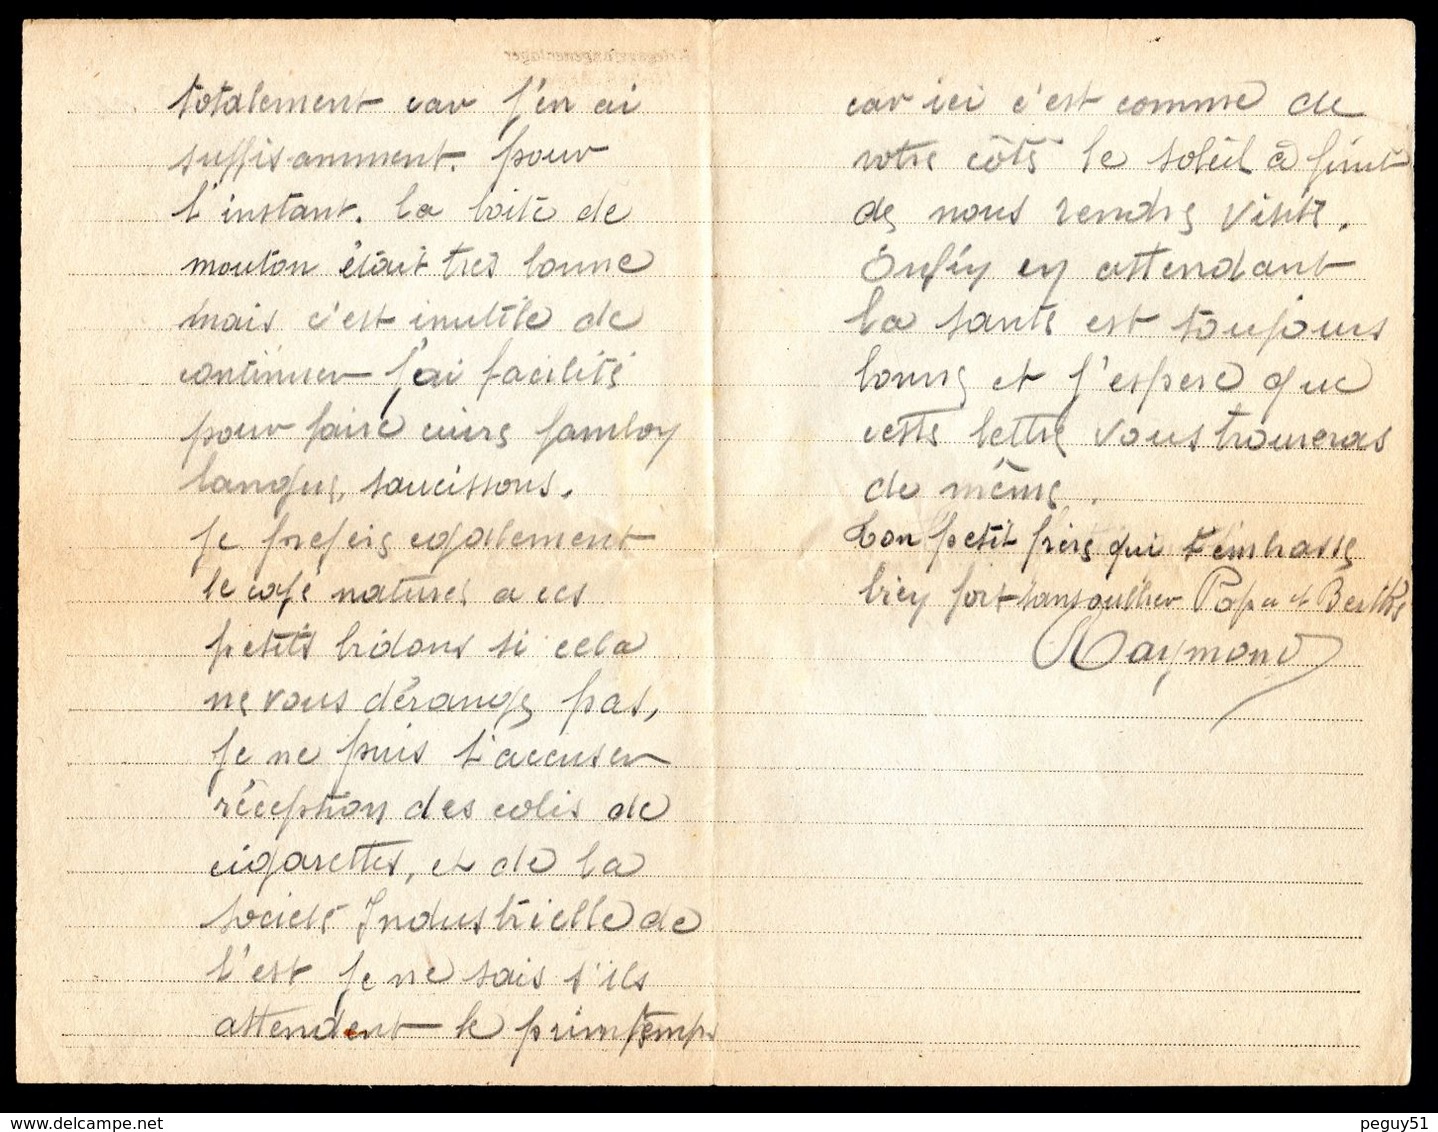 totalement car j'en ai
suffisamment. pour
l'instant. la boite de
mouton était tres bonne
mais c'est inutile de
continuer j'ai facilité
pour faire cuire jambon
langue, saucissons.
je prefere egalement
le café naturel a ces
petits bidons si cela
ne vous dérange pas,
je ne puis t'accuser
réception des colis de
cigarettes, et de la
société Industrielle de
l'est je ne sais s'ils
attendent le printemps
car ici c'est comme de
votre côté le soleil à finit
de nous rendre visite.
Enfin en attendant
la sante est toujours
bonne et j'espere que
cette lettre vous trouveras
de même.
Ton petit frère qui t'embrasse
bien fort sans oublier Papa et Berthe
Raymond
Kriegsgefangenenlager
peguy51